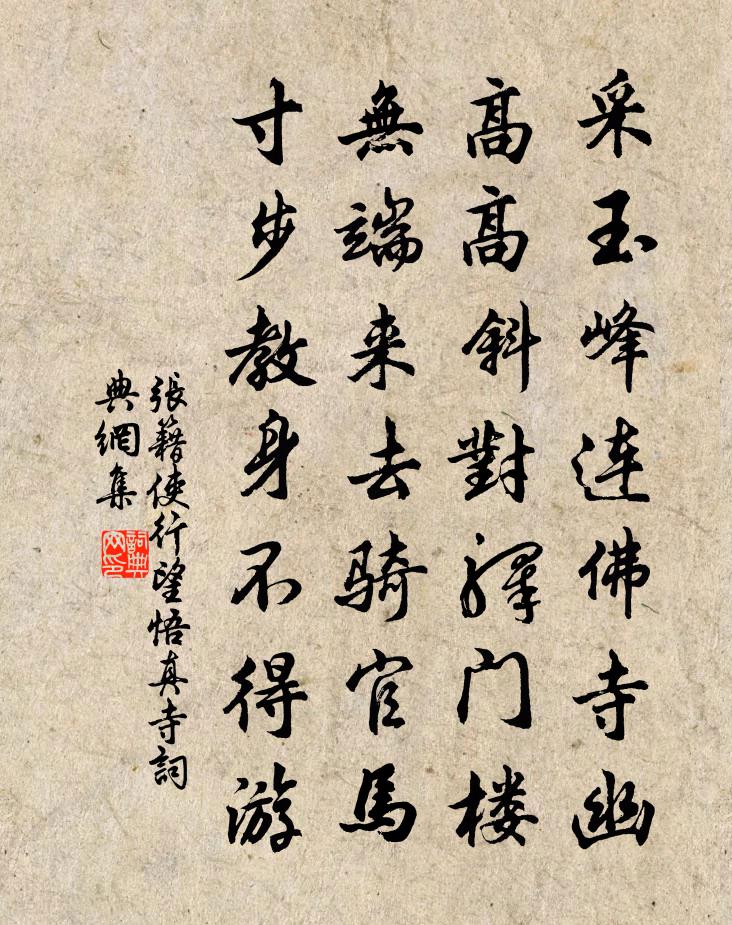 采玉峰连佛寺幽
高高斜對驿门楼
無端来去骑官馬
寸步教身不得游
張籍使行望悟真寺詞
典網集
詞典
网印